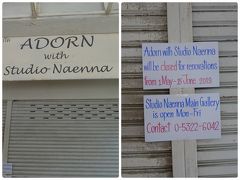 ADORN
with
Studio Naenna
Adorn with Studio Naenna
will be closed for renovations
from 1 May - 15 June 2013
Studio Naenna Main Gallery
is open Mon-Fri
Contact 0-5322-6042